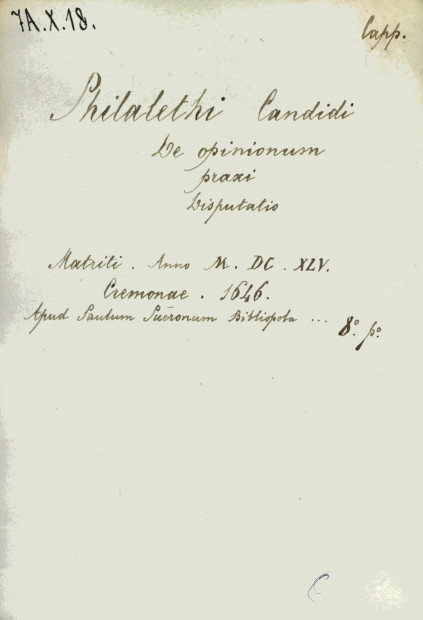 7A.X.18.
Capp.
Philalethi Candidi
De opinionum
praxi
Disputatio
Matriti. Anno M. DC. XLV.
Cremonae. 1646.
Apud Paulum Bibliopola ...
8° p°